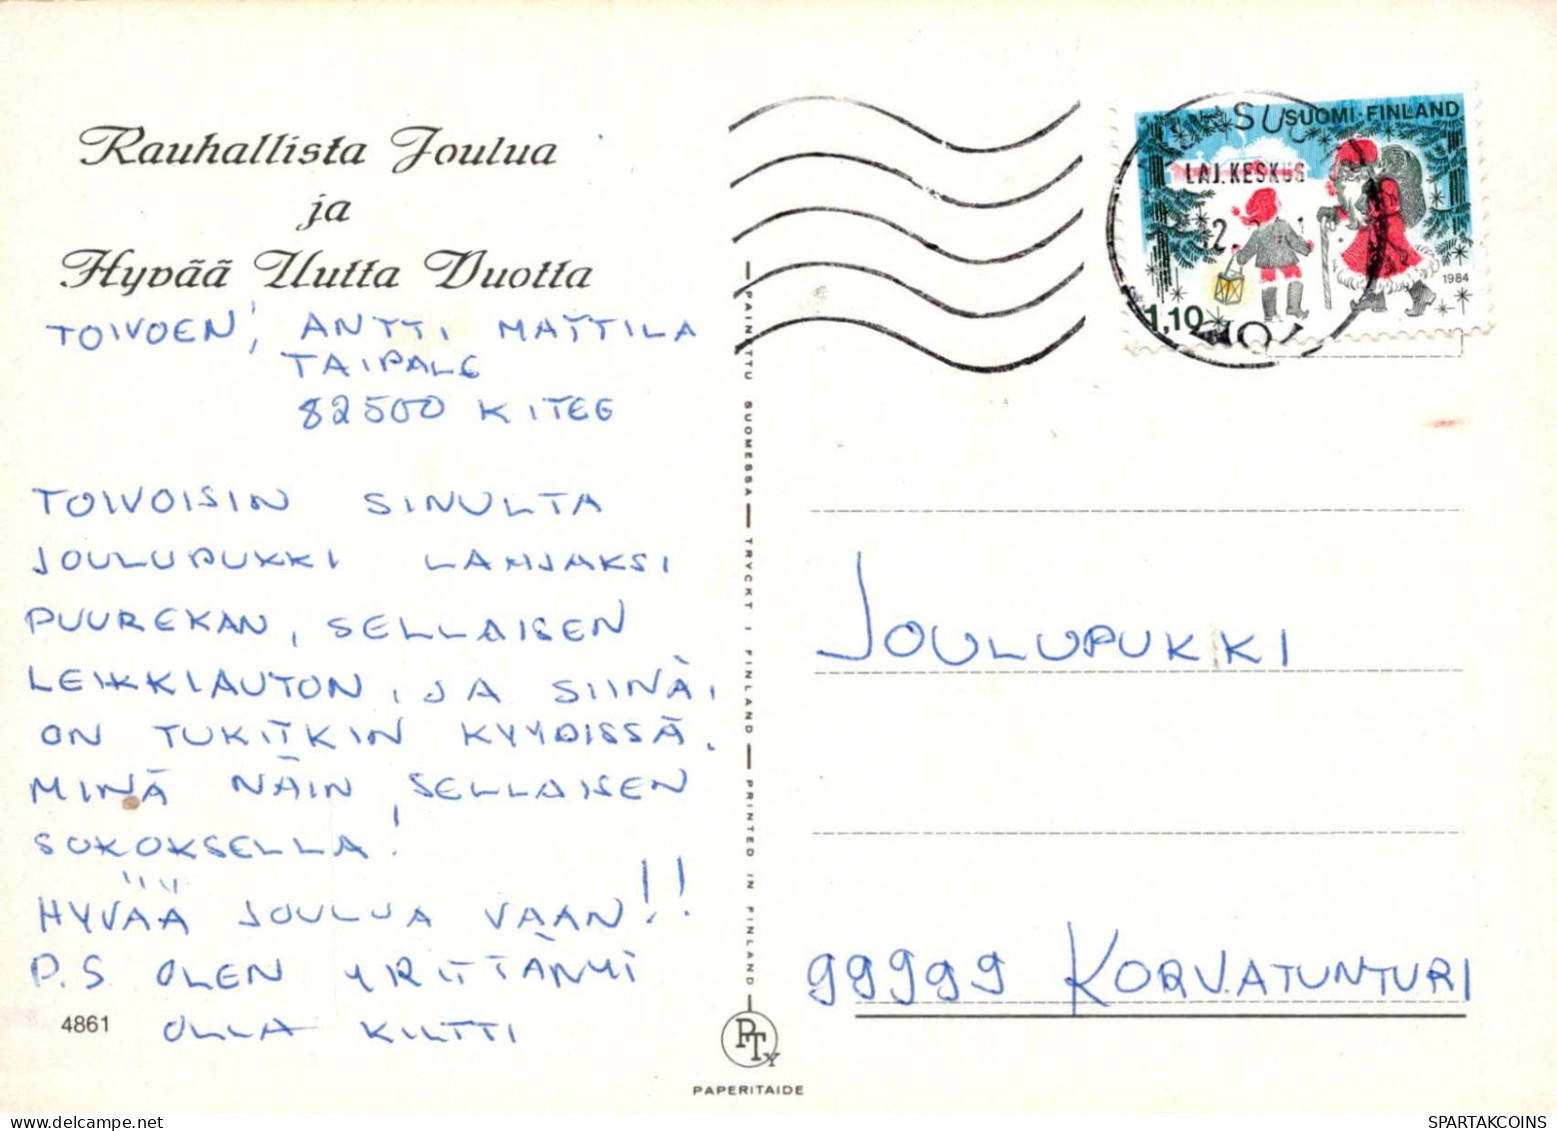 Rauhallista Joulua
ja
Hyvää Uutta Vuotta
TOIVOEN, ANTTI MATTILA
TAIPALE
82500 KITEE
TOIVOISIN SINULTA
JOULUPUKKI LAHJAKSI
PUUREKAN, SELLAISEN
LEIKKIAUTON, JA SIINÄ,
ON TUKITKIN KYYDISSÄ.
MINÄ NÄIN SELLAISEN
SOKOKSELLA!
HYVÄÄ JOULUA VAAN!!
P.S OLEN YRITTÄNYT
OLLA KILTTI
4861
PAINATTU SUOMESSA — TRYCKT I FINLAND — PRINTED IN FINLAND
PTY
PAPERITAIDE
SUOMI·FINLAND
LAJ.KESKUS
1984
1,10
JOULUPUKKI
99999 KORVATUNTURI
SPARTAKCOINS